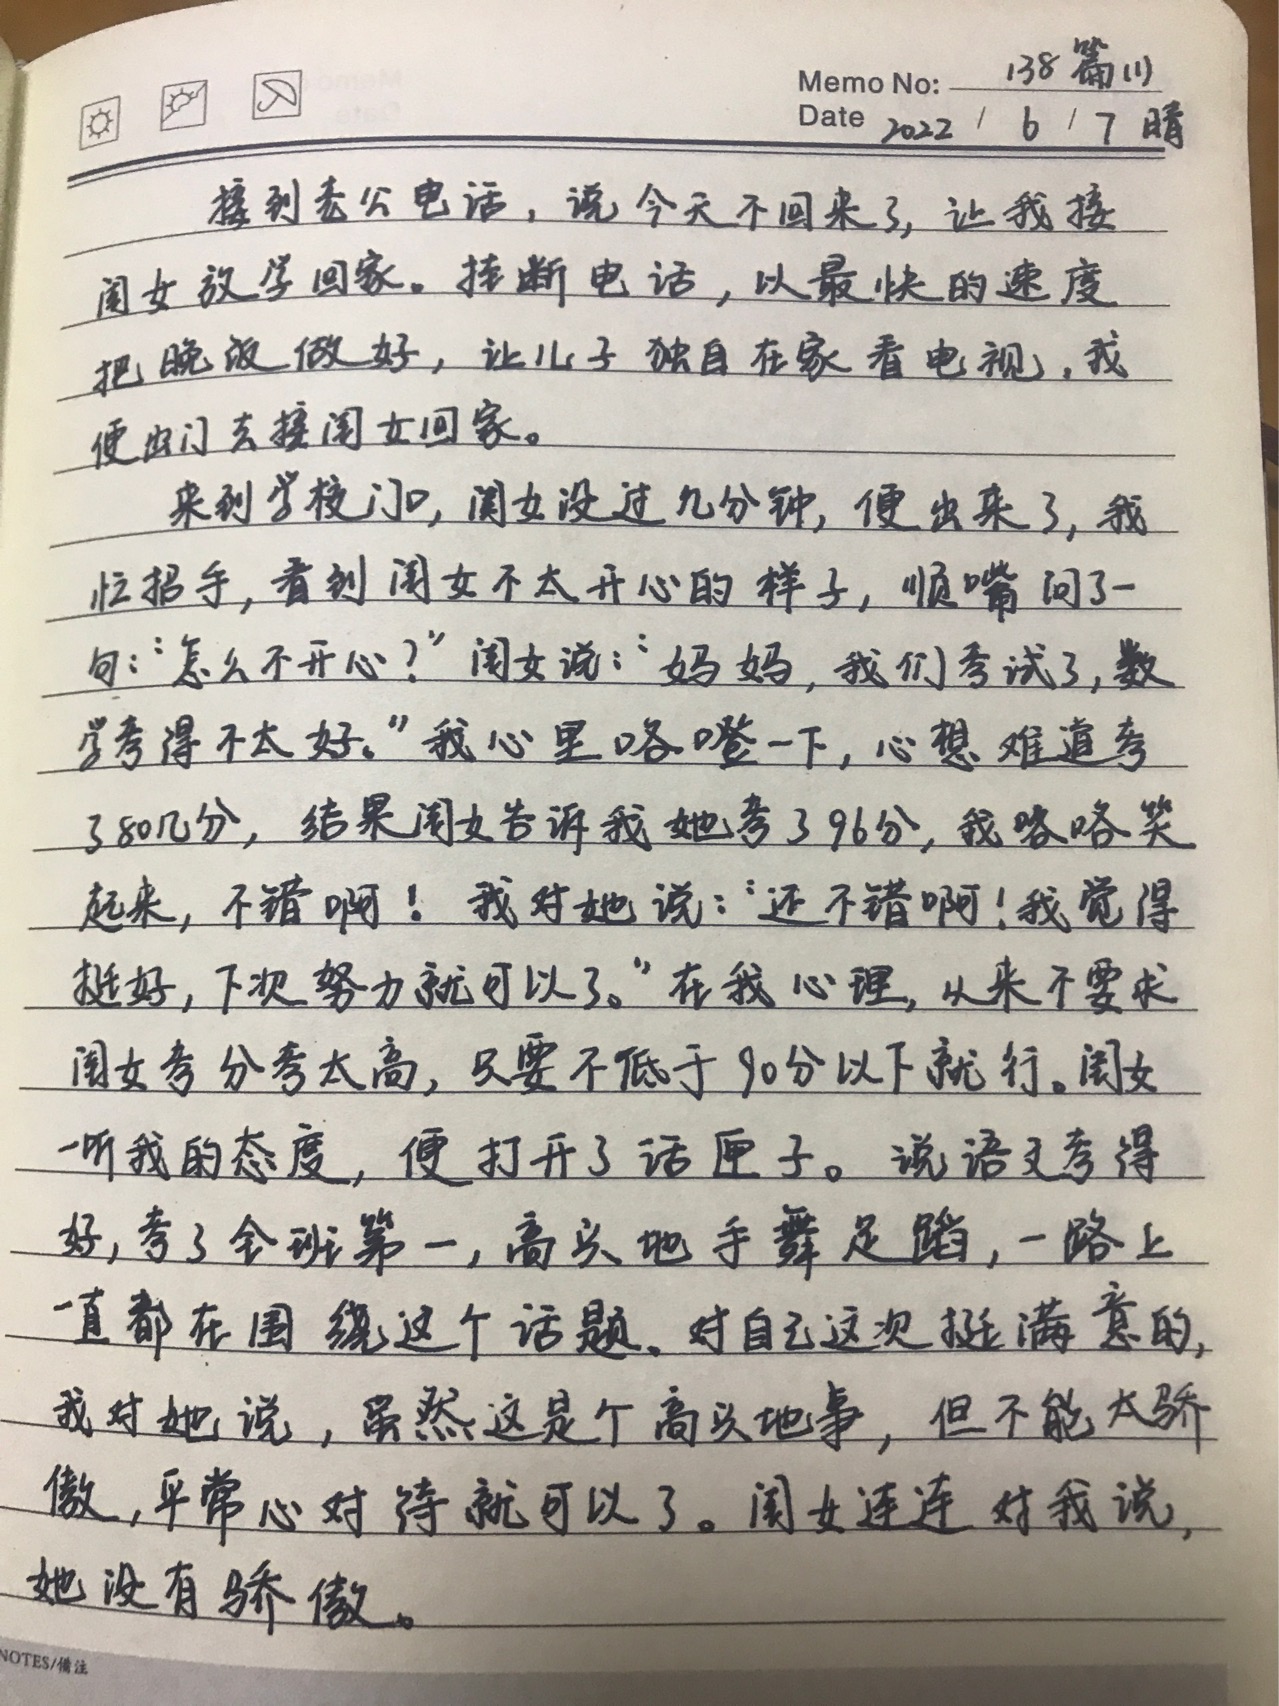 Memo No: 138篇(1)
Date 2022 / 6 / 7 晴
接到老公电话，说今天不回来了，让我接
闺女放学回家。挂断电话，以最快的速度
把晚饭做好，让儿子独自在家看电视，我
便出门去接闺女回家。
来到学校门口，闺女没过几分钟，便出来了，我
忙招手，看到闺女不太开心的样子，顺嘴问了一
句：“怎么不开心？”闺女说：“妈妈，我们考试了，数
学考得不太好。”我心里咯噔一下，心想难道考
了80几分，结果闺女告诉我她考了96分，我咯咯笑
起来，不错啊！我对她说：“还不错啊！我觉得
挺好，下次努力就可以了。”在我心理，从来不要求
闺女考分考太高，只要不低于90分以下就行。闺女
一听我的态度，便打开了话匣子。说语文考得
好，考了全班第一，高兴地手舞足蹈，一路上
一直都在围绕这个话题、对自己这次挺满意的，
我对她说，虽然这是个高兴地事，但不能太骄
傲，平常心对待就可以了。闺女连连对我说，
她没有骄傲。
NOTES/備注